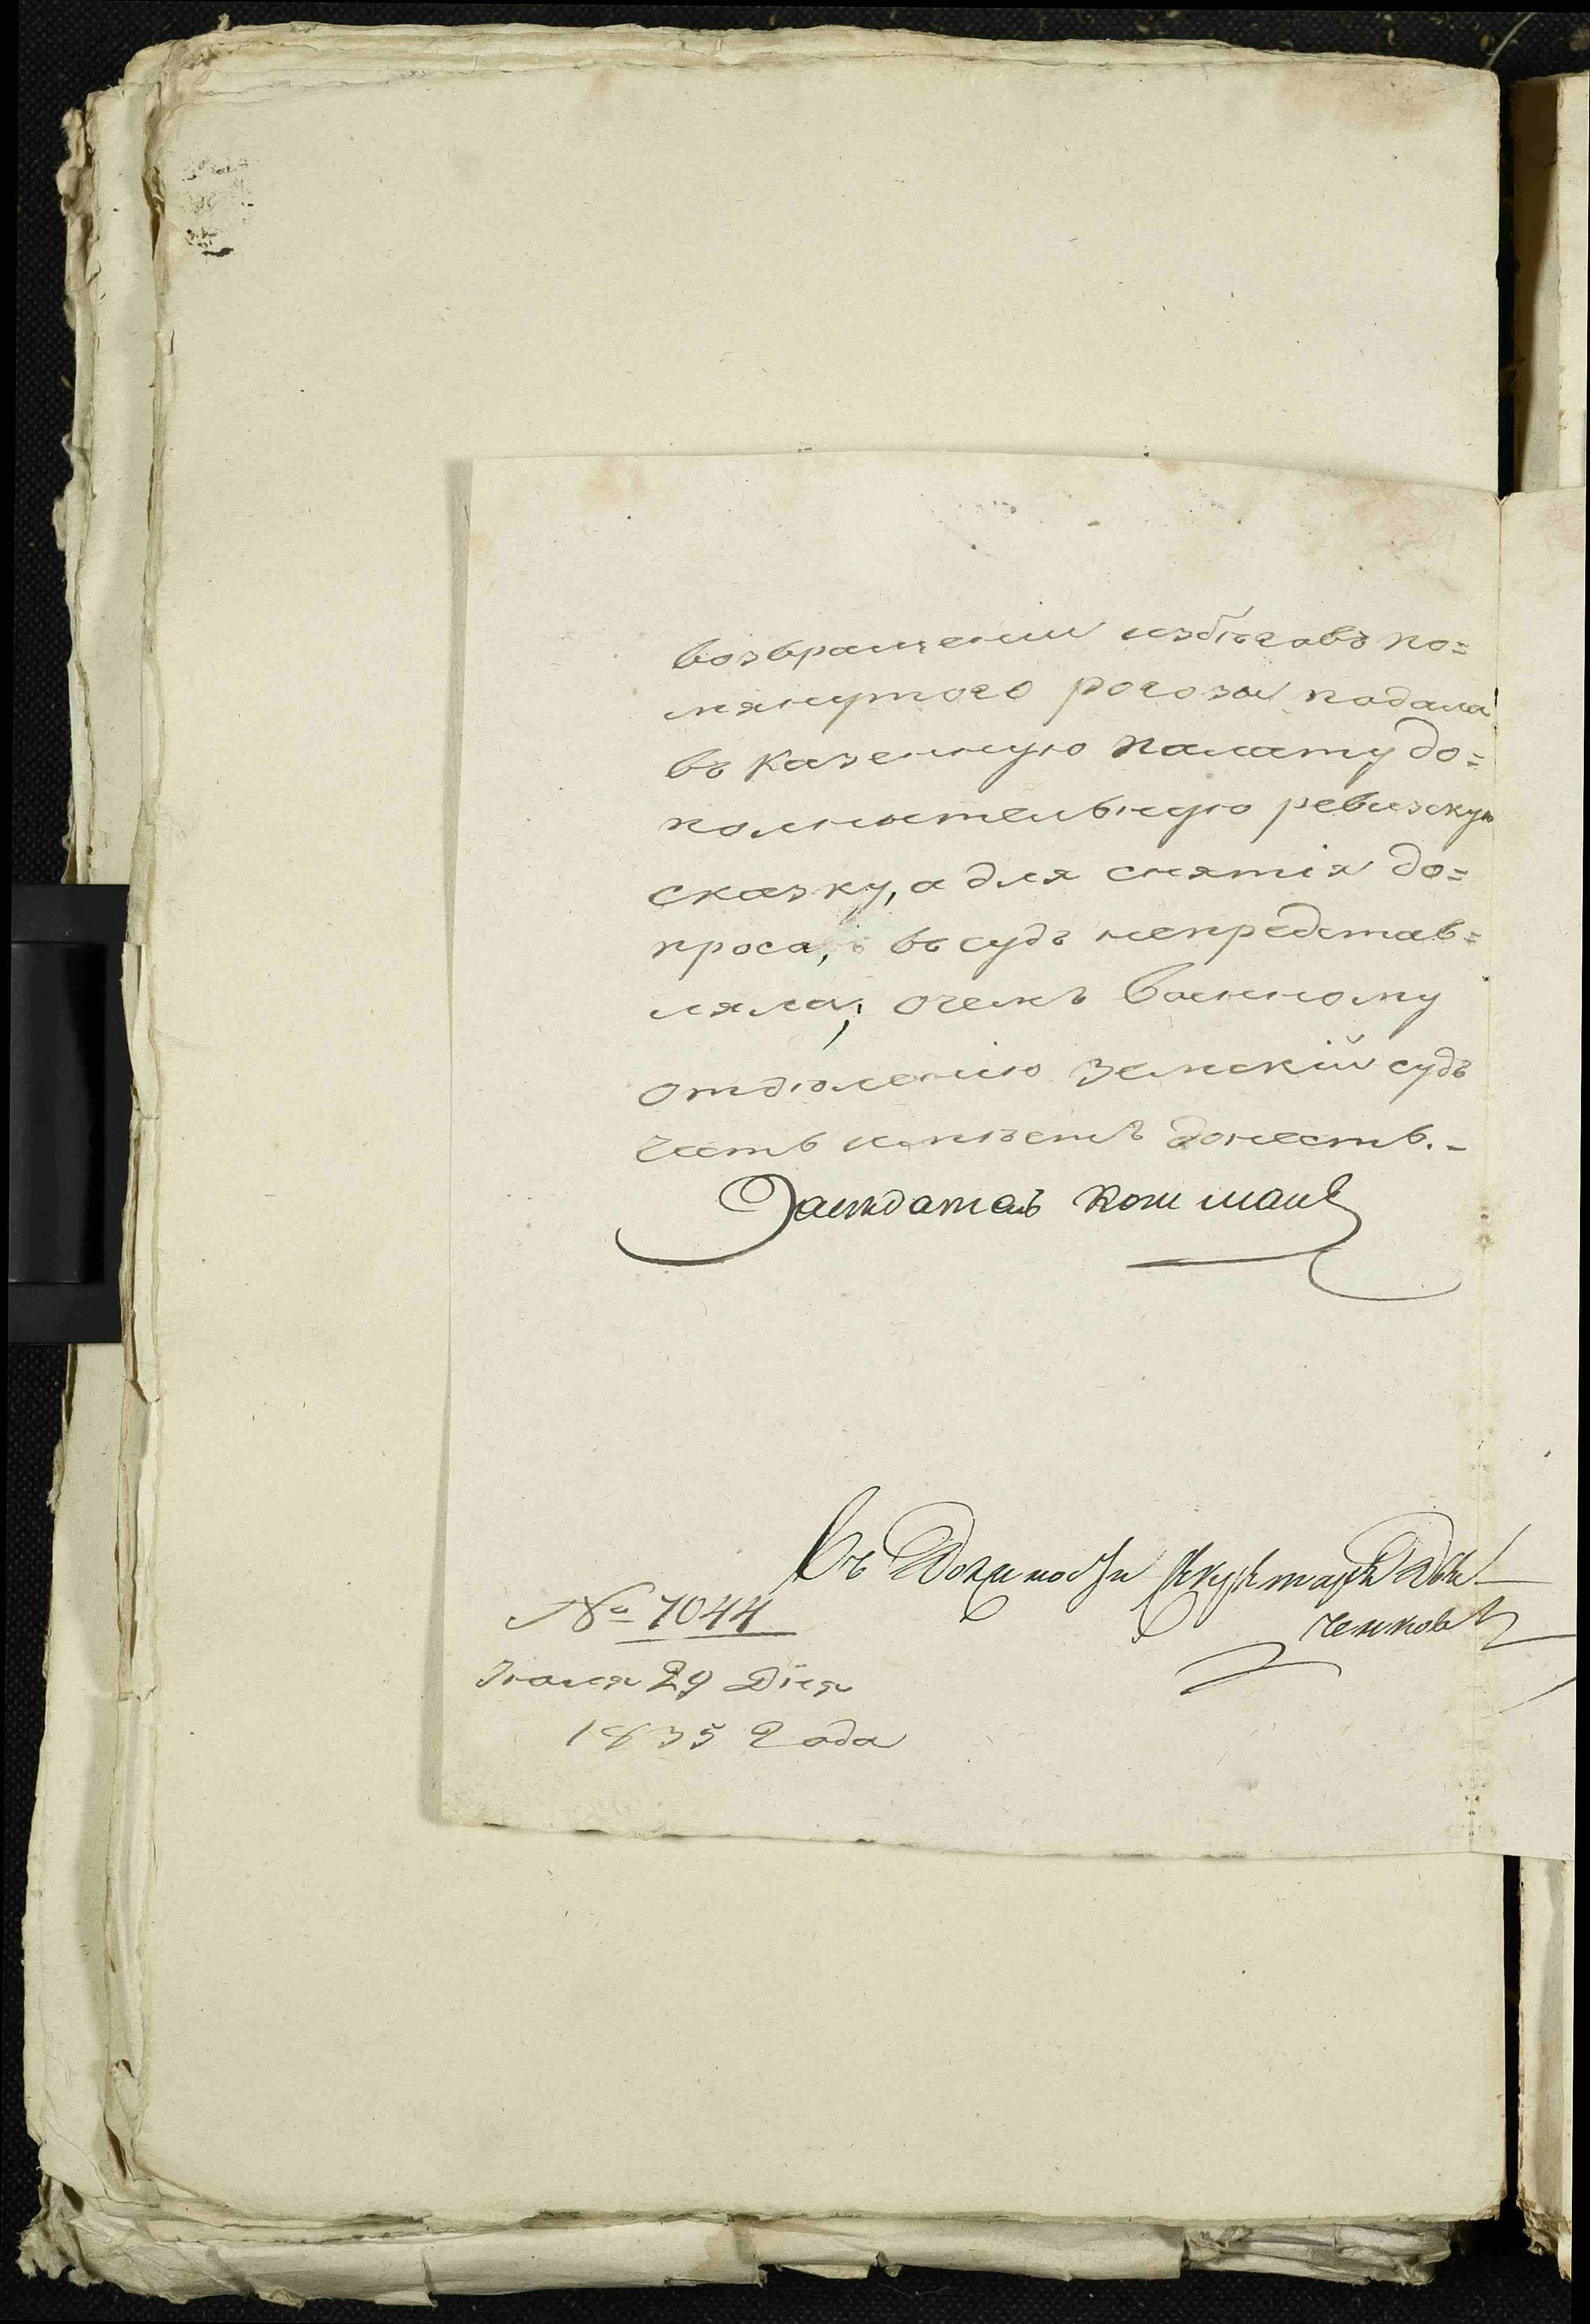 возвращении избѣговъ по=
мянутого рогозы подала
въ Казенную палату до=
полнительную ревизкую
сказку, а для снятія до=
проса, въ судъ непредстав=
ляла; очемъ Военному
отдѣленію Земскій судъ
честь имѣетъ донесть.-
Засѣдатель
Въ Должности
№ 1044
Іюля 29 Дня
1835 Года